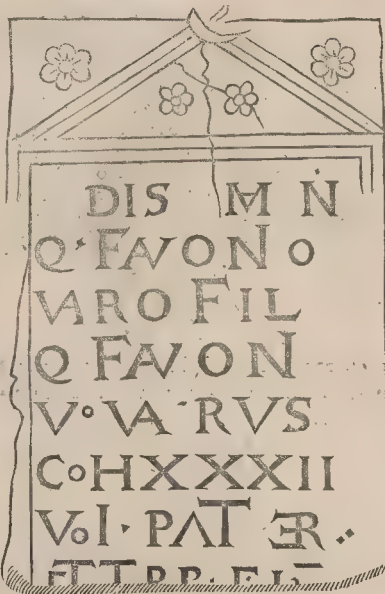 DIS M N
Q·FAVONO
VARO FIL
Q FAVON
VoVARVS
CoHXXXII
VoI·PATER